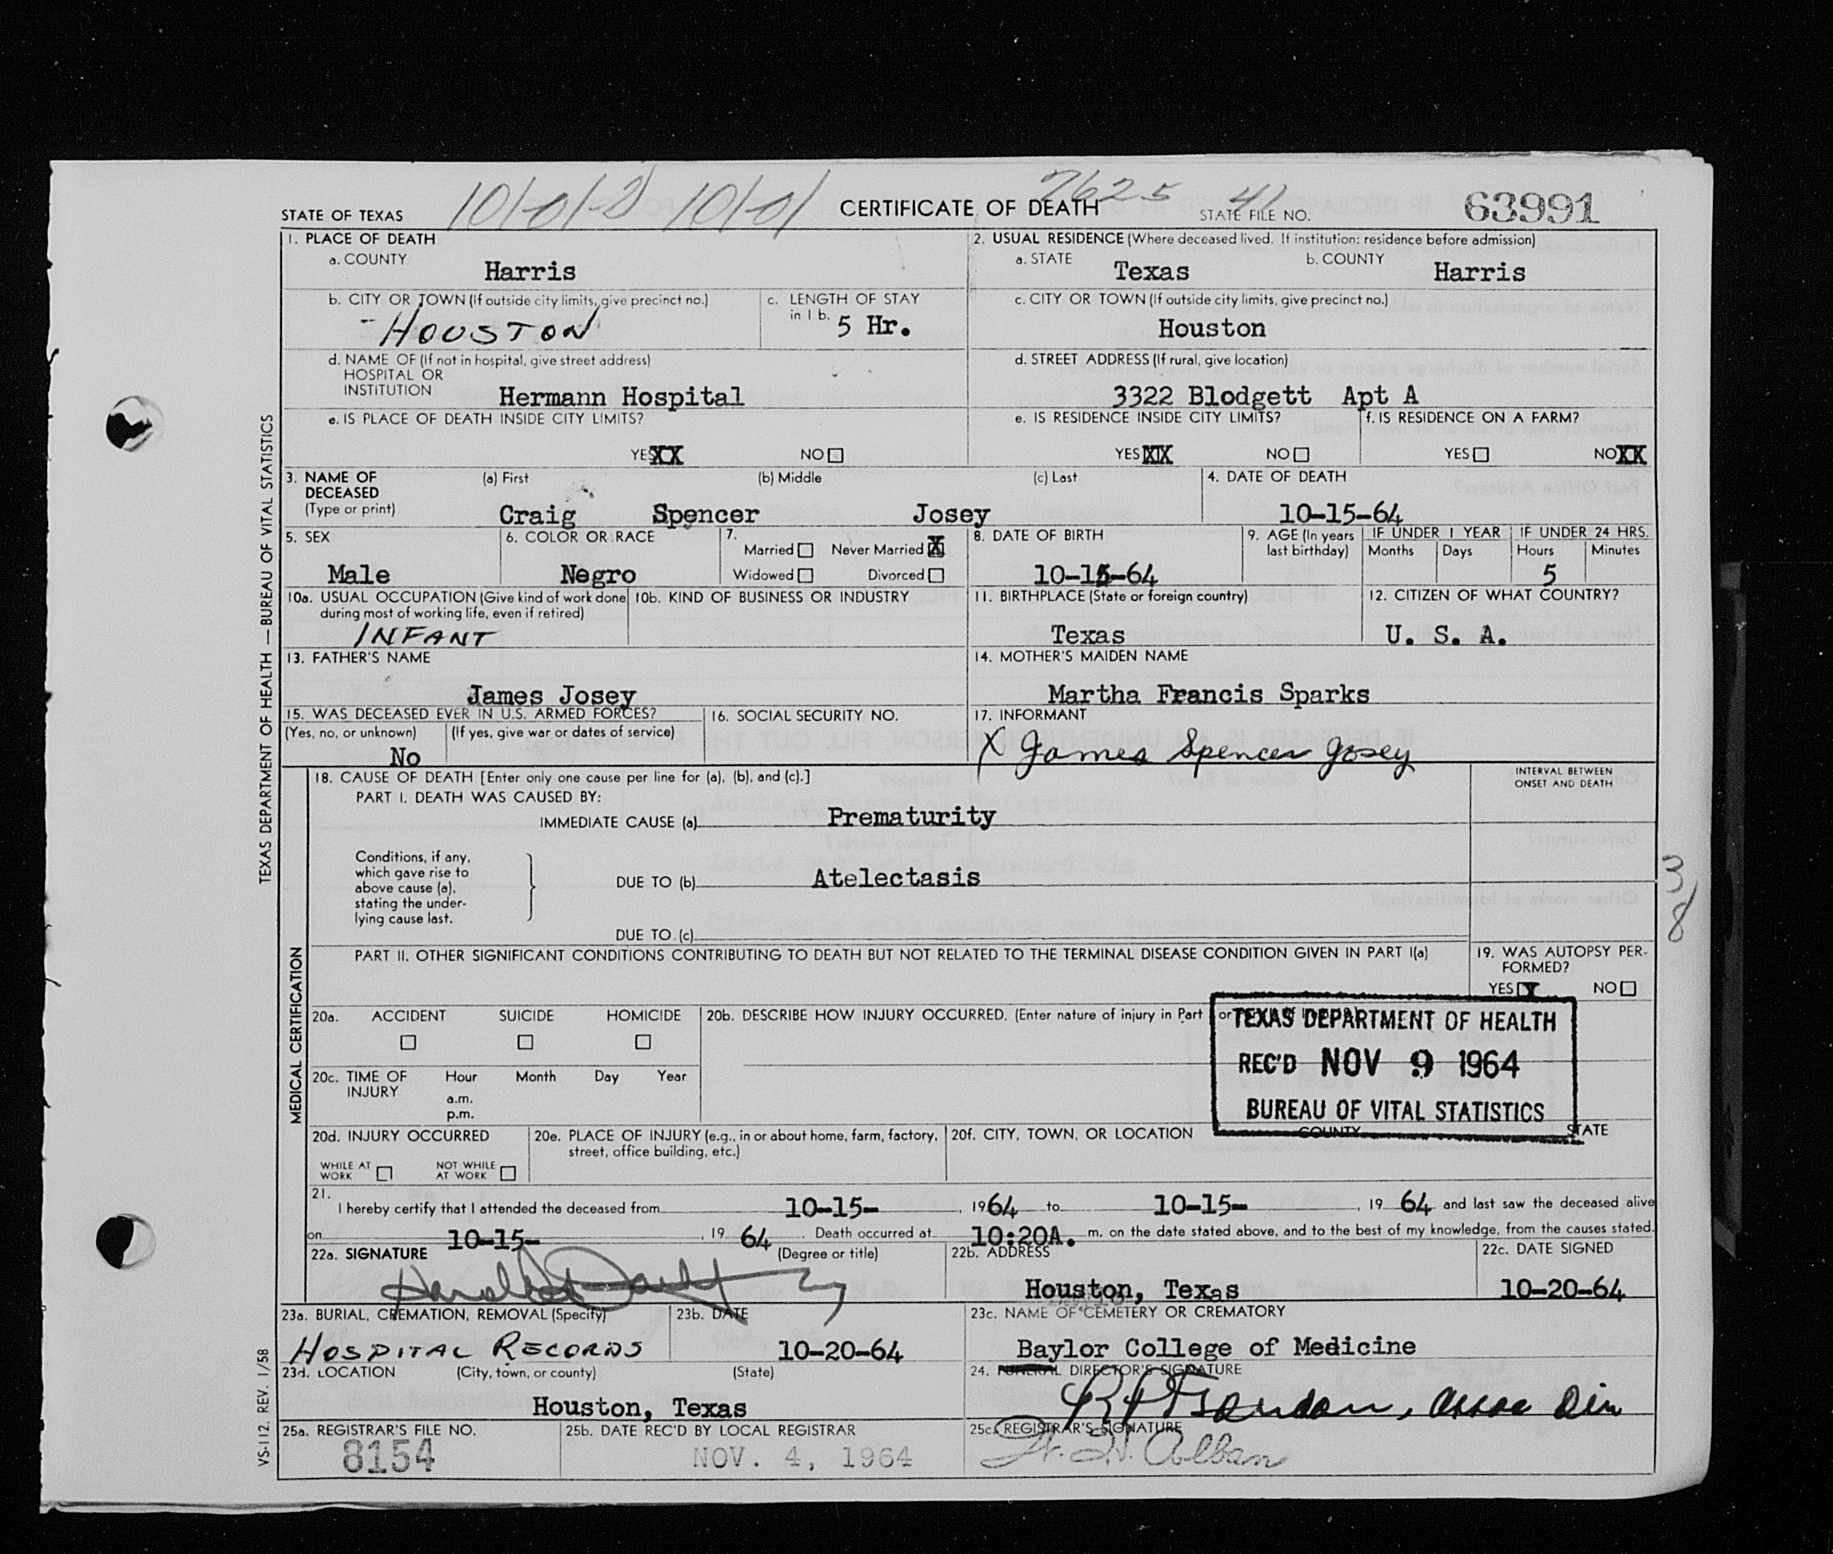 101-01-2 101-01 7625 41
STATE OF TEXAS CERTIFICATE OF DEATH STATE FILE NO. 63991
1. PLACE OF DEATH
a. COUNTY Harris
2. USUAL RESIDENCE (Where deceased lived. If institution: residence before admission)
a. STATE Texas b. COUNTY Harris
b. CITY OR TOWN (If outside city limits, give precinct no.) HOUSTON
c. LENGTH OF STAY in 1 b. 5 Hr.
c. CITY OR TOWN (If outside city limits, give precinct no.) Houston
d. NAME OF (If not in hospital, give street address)
HOSPITAL OR
INSTITUTION Hermann Hospital
d. STREET ADDRESS (If rural, give location)
3322 Blodgett Apt A
e. IS PLACE OF DEATH INSIDE CITY LIMITS?
YES XX NO
e. IS RESIDENCE INSIDE CITY LIMITS?
YES XX NO
f. IS RESIDENCE ON A FARM?
YES NO XX
3. NAME OF DECEASED (Type or print)
(a) First (b) Middle (c) Last
Craig Spencer Josey
4. DATE OF DEATH
10-15-64
5. SEX
Male
6. COLOR OR RACE
Negro
7.
Married Never Married X
Widowed Divorced
8. DATE OF BIRTH
10-15-64
9. AGE (In years last birthday)
IF UNDER 1 YEAR
Months Days
IF UNDER 24 HRS.
Hours Minutes
5
10a. USUAL OCCUPATION (Give kind of work done during most of working life, even if retired)
INFANT
10b. KIND OF BUSINESS OR INDUSTRY
11. BIRTHPLACE (State or foreign country)
Texas
12. CITIZEN OF WHAT COUNTRY?
U. S. A.
13. FATHER'S NAME
James Josey
14. MOTHER'S MAIDEN NAME
Martha Francis Sparks
15. WAS DECEASED EVER IN U.S. ARMED FORCES?
(Yes, no, or unknown) (If yes, give war or dates of service)
No
16. SOCIAL SECURITY NO.
17. INFORMANT
X James Spencer Josey
18. CAUSE OF DEATH [Enter only one cause per line for (a), (b), and (c).]
PART I. DEATH WAS CAUSED BY:
IMMEDIATE CAUSE (a) Prematurity
INTERVAL BETWEEN
ONSET AND DEATH
Conditions, if any,
which gave rise to
above cause (a),
stating the under-
lying cause last.
DUE TO (b) Atelectasis
DUE TO (c)
38
PART II. OTHER SIGNIFICANT CONDITIONS CONTRIBUTING TO DEATH BUT NOT RELATED TO THE TERMINAL DISEASE CONDITION GIVEN IN PART I(a)
19. WAS AUTOPSY PER-
FORMED?
YES X NO
20a. ACCIDENT SUICIDE HOMICIDE
20b. DESCRIBE HOW INJURY OCCURRED. (Enter nature of injury in Part I or
TEXAS DEPARTMENT OF HEALTH
REC'D NOV 9 1964
BUREAU OF VITAL STATISTICS
20c. TIME OF INJURY
Hour Month Day Year
a.m.
p.m.
20d. INJURY OCCURRED
WHILE AT WORK NOT WHILE AT WORK
20e. PLACE OF INJURY (e.g., in or about home, farm, factory, street, office building, etc.)
20f. CITY, TOWN, OR LOCATION COUNTY STATE
21.
I hereby certify that I attended the deceased from 10-15- , 1964 to 10-15- , 19 64 and last saw the deceased alive
on 10-15- , 19 64 . Death occurred at 10:20A. m. on the date stated above, and to the best of my knowledge, from the causes stated.
22a. SIGNATURE (Degree or title)
22b. ADDRESS
Houston, Texas
22c. DATE SIGNED
10-20-64
23a. BURIAL, CREMATION, REMOVAL (Specify)
HOSPITAL RECORDS
23b. DATE
10-20-64
23c. NAME OF CEMETERY OR CREMATORY
Baylor College of Medicine
23d. LOCATION (City, town, or county) (State)
Houston, Texas
24. FUNERAL DIRECTOR'S SIGNATURE
25a. REGISTRAR'S FILE NO.
8154
25b. DATE REC'D BY LOCAL REGISTRAR
NOV. 4, 1964
25c. REGISTRAR'S SIGNATURE
W. W. Alban
TEXAS DEPARTMENT OF HEALTH — BUREAU OF VITAL STATISTICS
MEDICAL CERTIFICATION
VS-112. REV. 1/58